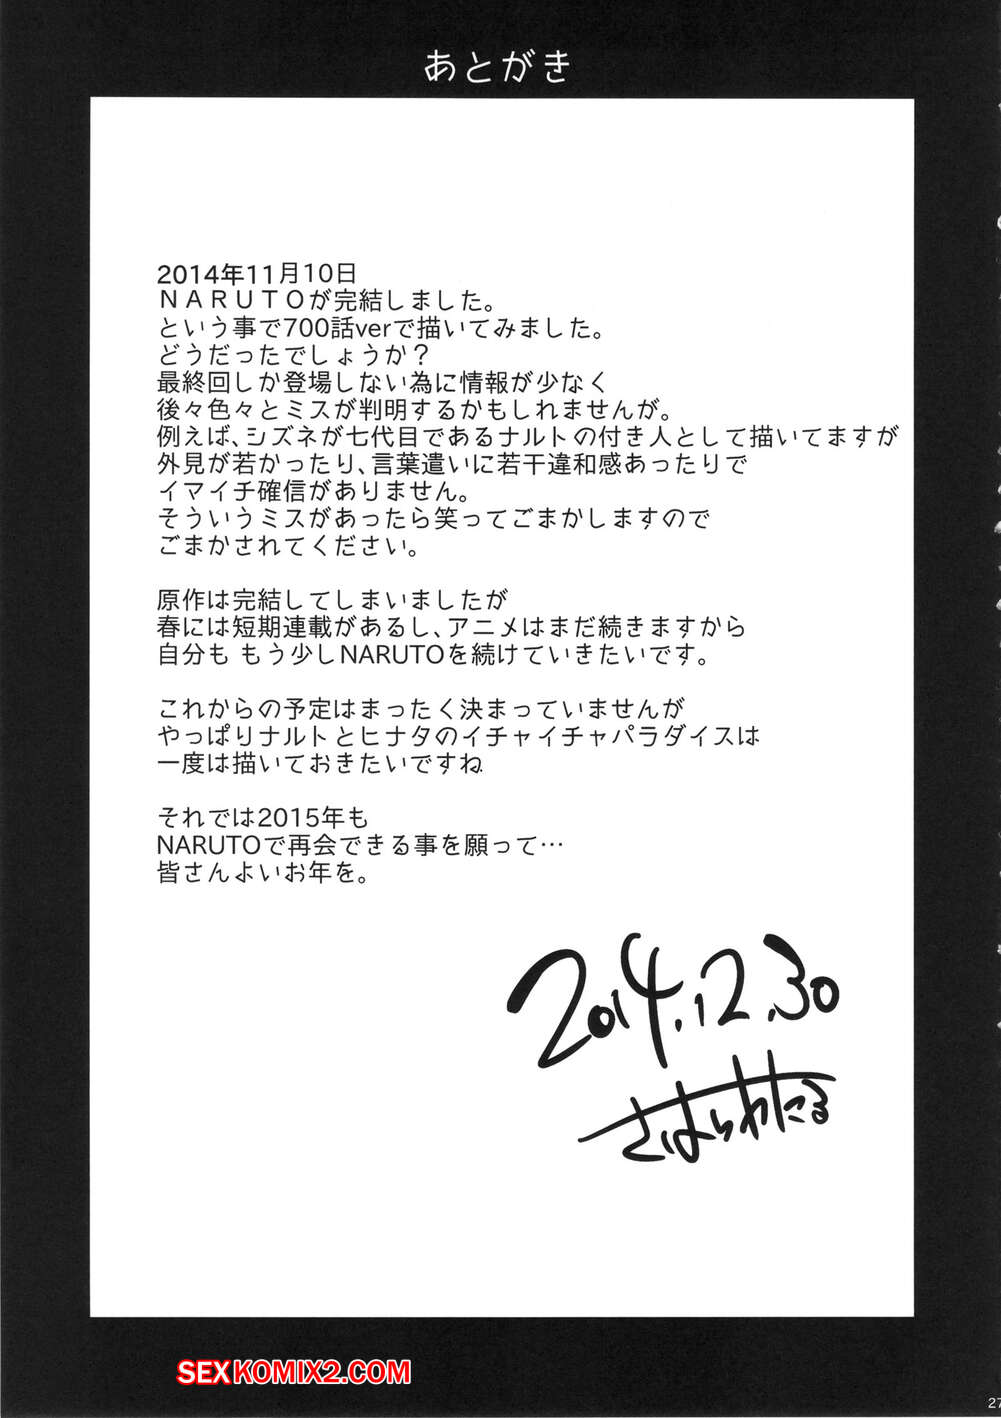 あとがき
2014年11月10日
ＮＡＲＵＴＯが完結しました。
という事で700話verで描いてみました。
どうだったでしょうか？
最終回しか登場しない為に情報が少なく
後々色々とミスが判明するかもしれませんが。
例えば、シズネが七代目であるナルトの付き人として描いてますが
外見が若かったり、言葉遣いに若干違和感あったりで
イマイチ確信がありません。
そういうミスがあったら笑ってごまかしますので
ごまかされてください。
原作は完結してしまいましたが
春には短期連載があるし、アニメはまだ続きますから
自分も もう少しNARUTOを続けていきたいです。
これからの予定はまったく決まっていませんが
やっぱりナルトとヒナタのイチャイチャパラダイスは
一度は描いておきたいですね
それでは2015年も
NARUTOで再会できる事を願って…
皆さんよいお年を。
2014.12.30
さはらわたる
SEXKOMIX2.COM
27